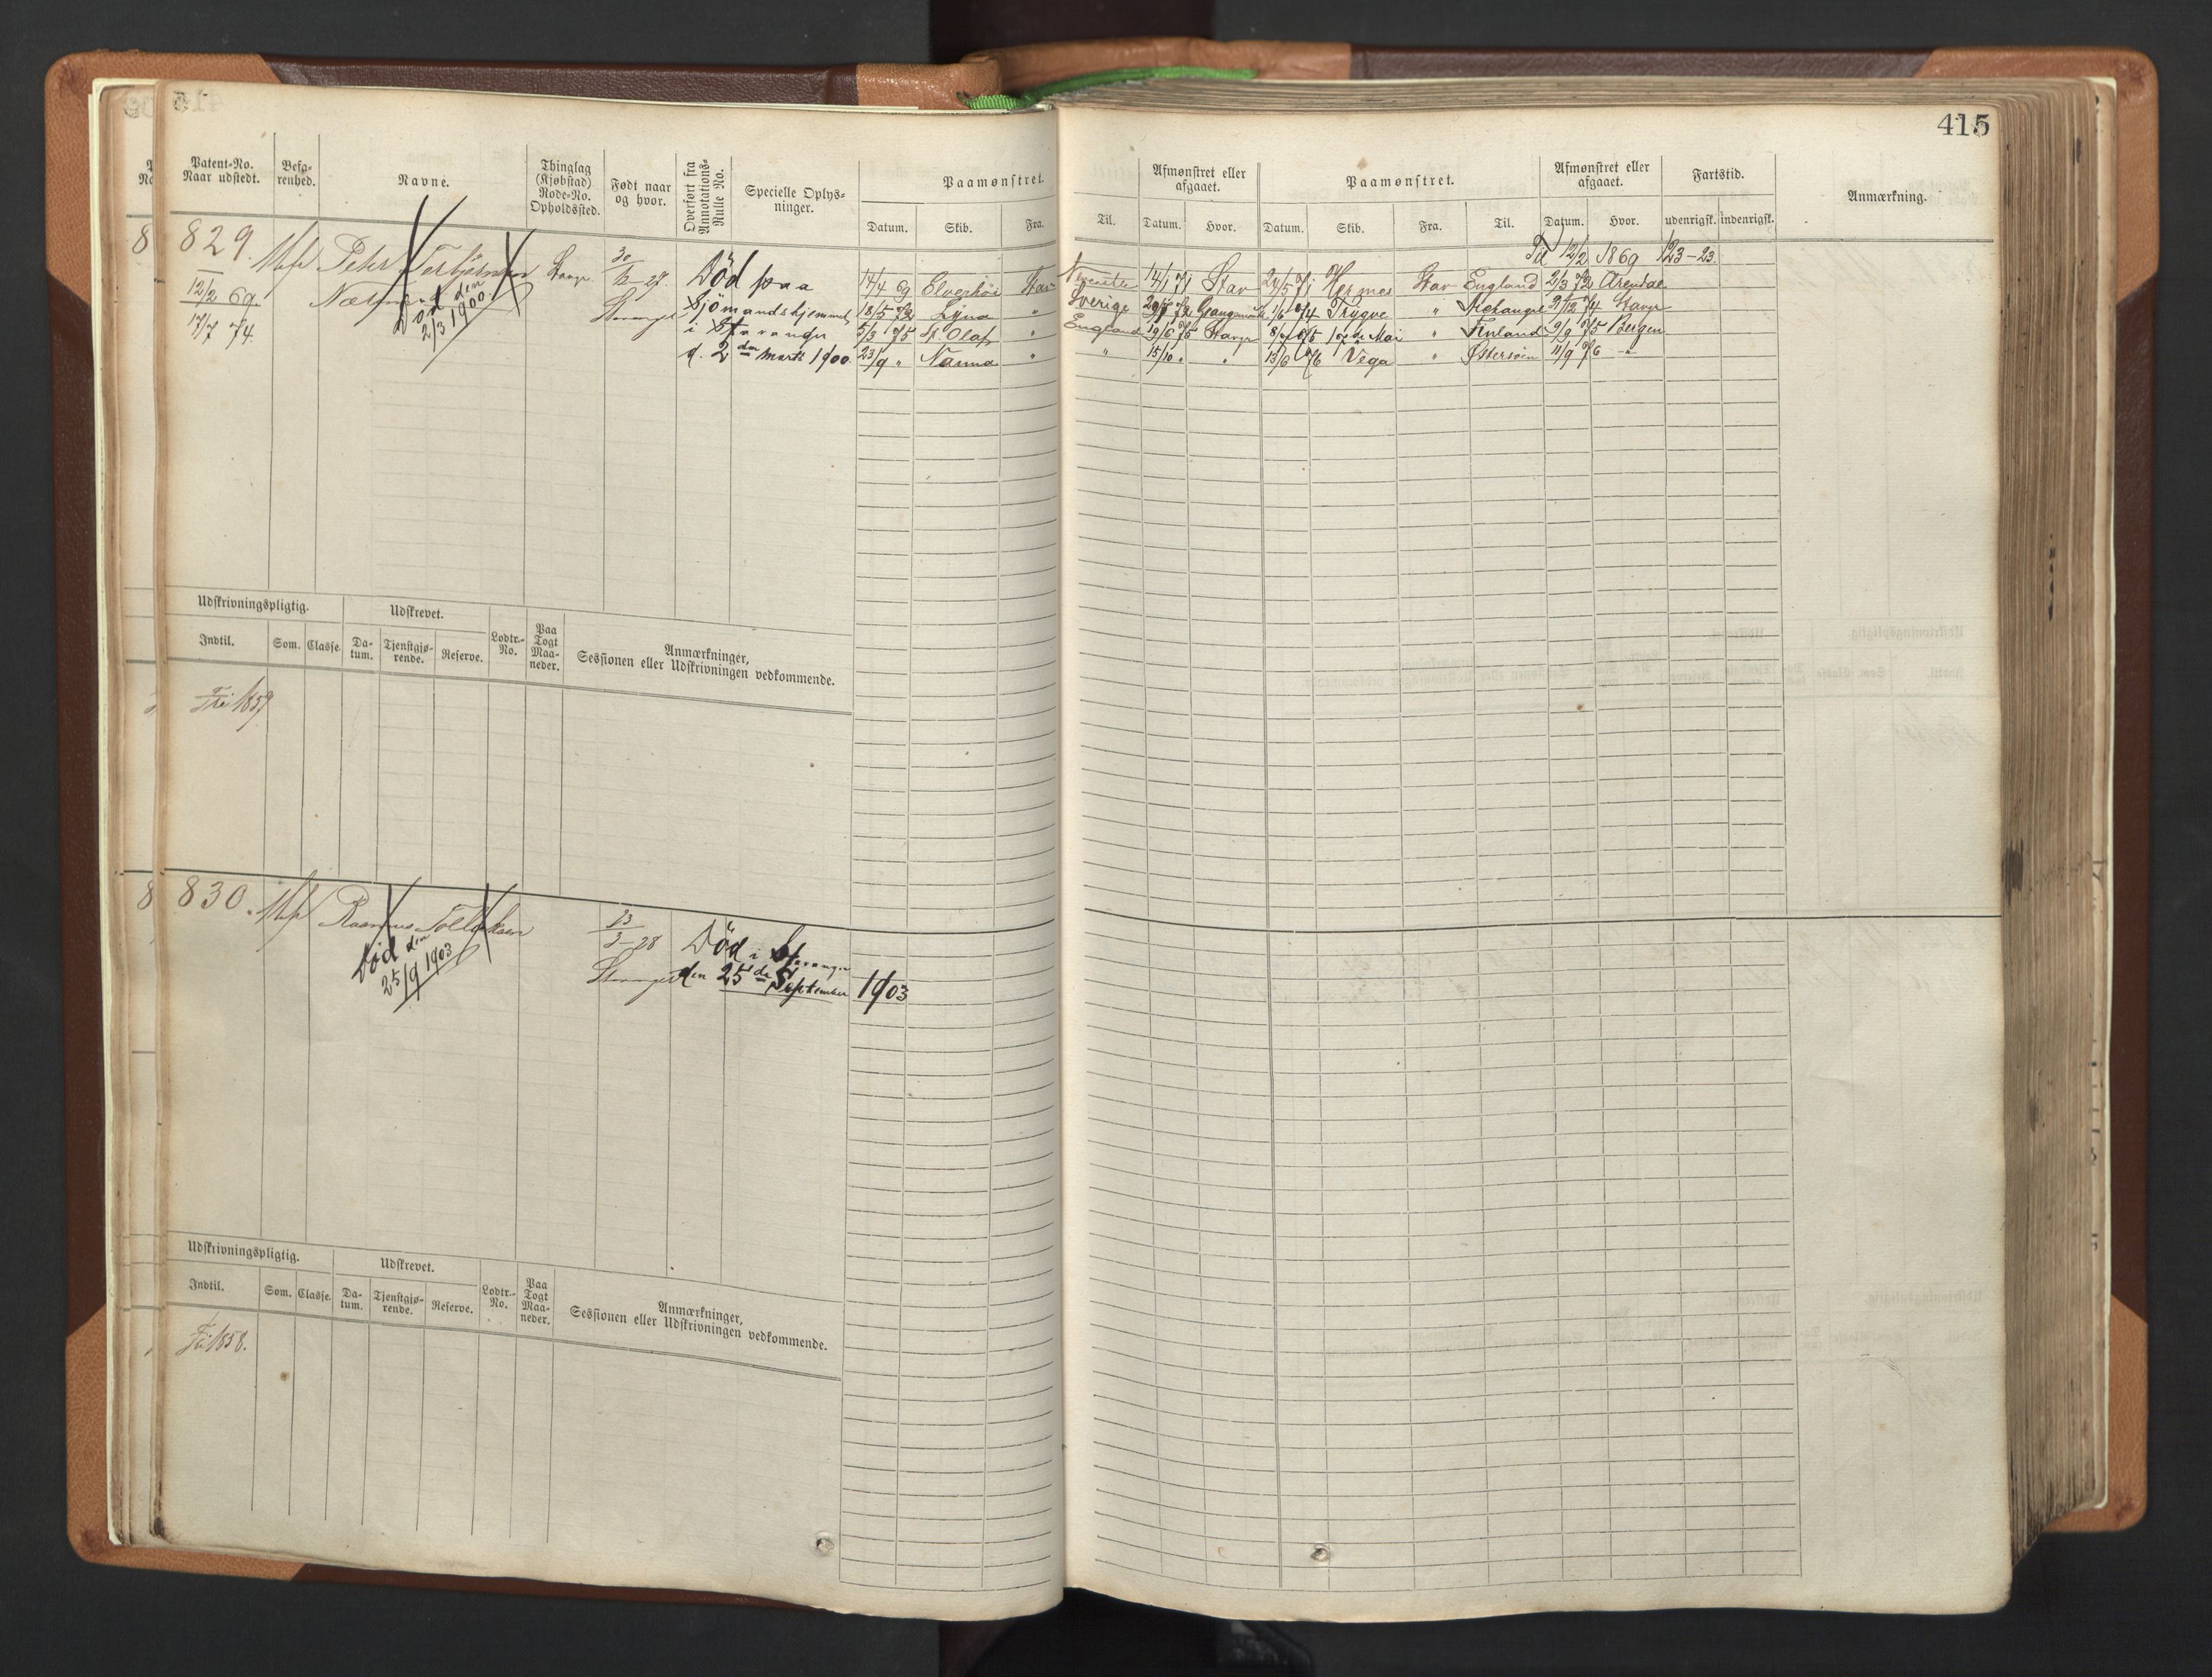 415
Patent-No. Naar udstedt.
Befa-renhed.
Navne.
Thinglag (Kjøbstad) Rode-No. Opholdssted.
Født naar og hvor.
Overført fra Annotations-Rulle No.
Specielle Oplys-ninger.
Paamønstret.
Datum. Skib. Fra. Til.
Afmønstret eller afgaaet.
Datum. Hvor.
Paamønstret.
Datum. Skib. Fra. Til.
Afmønstret eller afgaaet.
Datum. Hvor.
Fartstid.
udenrigsk. indenrigsk.
Anmærkning.
829.
12/2 69.
17/7 74.
Peder Torbjörnsen
Død den
2/3 1900.
Stavanger
Død paa
Sjömandshjemmet
i Stavanger
d. 2den Marts 1900.
Til 12/2 1869 123-23
17/4 69 Elverhöi Stav 14/1 71 Stav 24/5 71 Hermes Stav England 2/3 72 Arendal
18/5 72 Lyna " Sverige 72 1/6 74 Trygve " Archangel 9/12 74 Stavgr
5/3 75 St. Olaf " England 19/6 75 Stavgr 75 Mai " Finland 9/9 75 Bergen
23/9 " Nanna " " 15/10 " " 13/6 76 Vega " Østersøen 11/9 76 "
Udskrivningspligtig. Udskrevet.
Indtil. Som. Classe. Da-tum. Tjenstgjø-rende. Reserve. Lodtr.-No. Paa Togt Maa-neder.
Anmærkninger, Sessionen eller Udskrivningen vedkommende.
Fri 1857
830.
Rasmus Tollaksen
Død den
25/9 1903
3-28
Stavanger
Død i Stavanger
den 25de September 1903
Udskrivningspligtig. Udskrevet.
Indtil. Som. Classe. Da-tum. Tjenstgjø-rende. Reserve. Lodtr.-No. Paa Togt Maa-neder.
Anmærkninger, Sessionen eller Udskrivningen vedkommende.
Fri 1858.